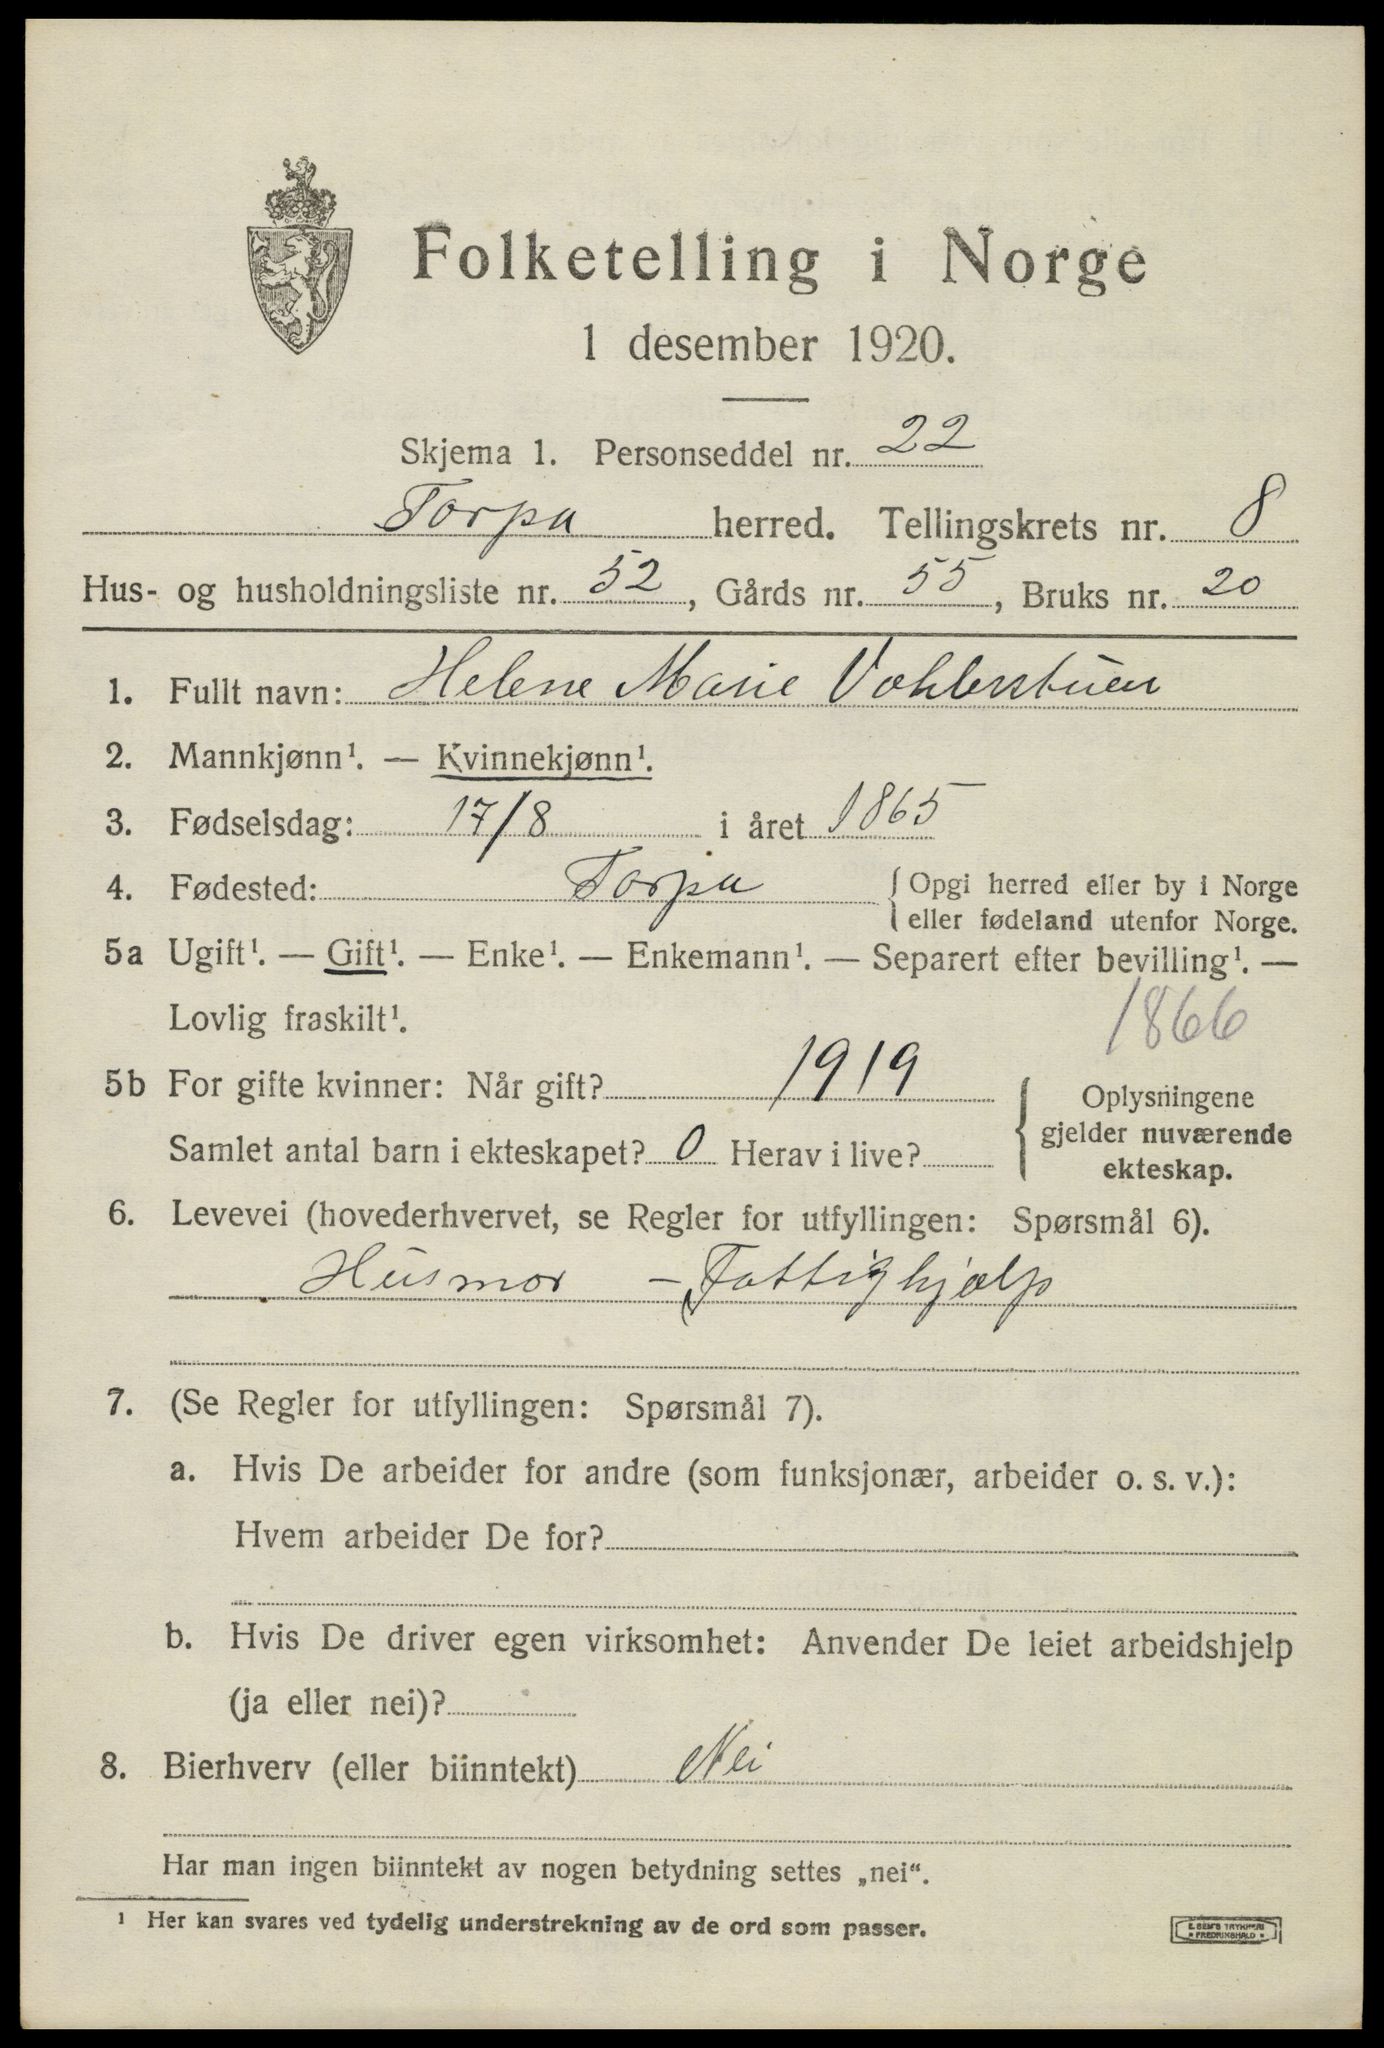 Folketelling i Norge
1 desember 1920.
Skjema 1. Personseddel nr. 22
Torpa herred. Tellingskrets nr. 8
Hus- og husholdningsliste nr. 52, Gårds nr. 55, Bruks nr. 20
1. Fullt navn: Helene Marie
2. Mannkjønn¹. — Kvinnekjønn¹.
3. Fødselsdag: 17/8 i året 1865
4. Fødested: Torpa { Opgi herred eller by i Norge
eller fødeland utenfor Norge.
5a Ugift¹. — Gift¹. — Enke¹. — Enkemann¹. — Separert efter bevilling¹. —
Lovlig fraskilt¹.
1866
5b For gifte kvinner: Når gift? 1919
Samlet antal barn i ekteskapet? 0 Herav i live?
{ Oplysningene
gjelder nuværende
ekteskap.
6. Levevei (hovederhvervet, se Regler for utfyllingen: Spørsmål 6).
Husmor – Fattighjælp
7. (Se Regler for utfyllingen: Spørsmål 7).
a. Hvis De arbeider for andre (som funksjonær, arbeider o. s. v.):
Hvem arbeider De for?
b. Hvis De driver egen virksomhet: Anvender De leiet arbeidshjelp
(ja eller nei)?
8. Bierhverv (eller biinntekt) Nei
Har man ingen biinntekt av nogen betydning settes „nei“.
¹ Her kan svares ved tydelig understrekning av de ord som passer.
E. SEM'S TRYKKERI
• FREDRIKSHALD •